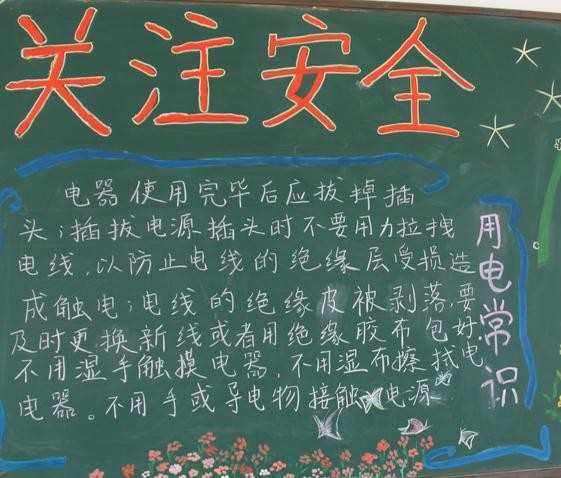 关注安全
电器使用完毕后应拔掉插
头;插拔电源插头时不要用力拉拽
电线,以防止电线的绝缘层受损造
成触电;电线的绝缘皮被剥落,要
及时更换新线或者用绝缘胶布包好
不用湿手触摸电器,不用湿布擦拭电
电器。不用手或导电物接触电源
用电常识